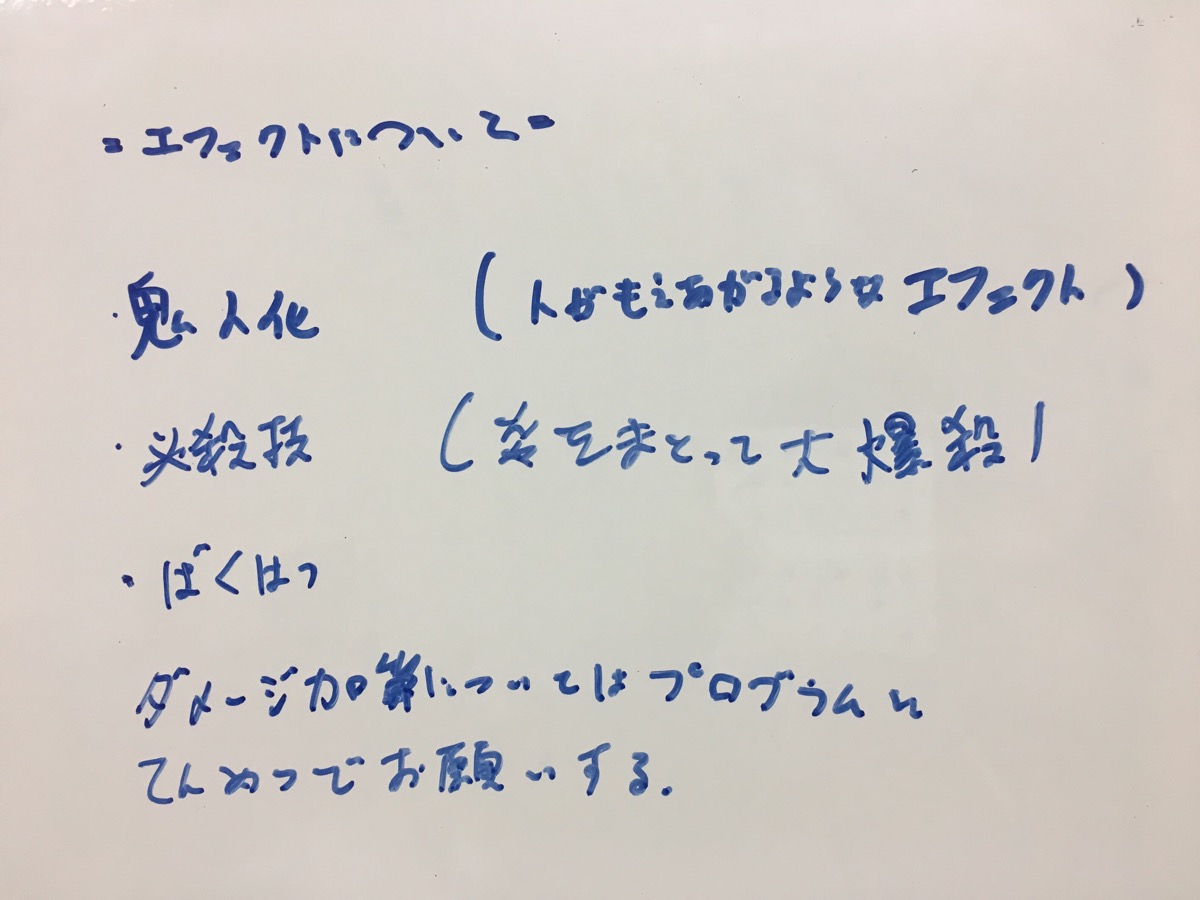 =エフェクトについて=
・鬼人化 (人がもえあがるようなエフェクト)
・必殺技 (炎をまとって大爆殺)
・ばくはつ
ダメージ加算についてはプログラムに
てんめつでお願いする.